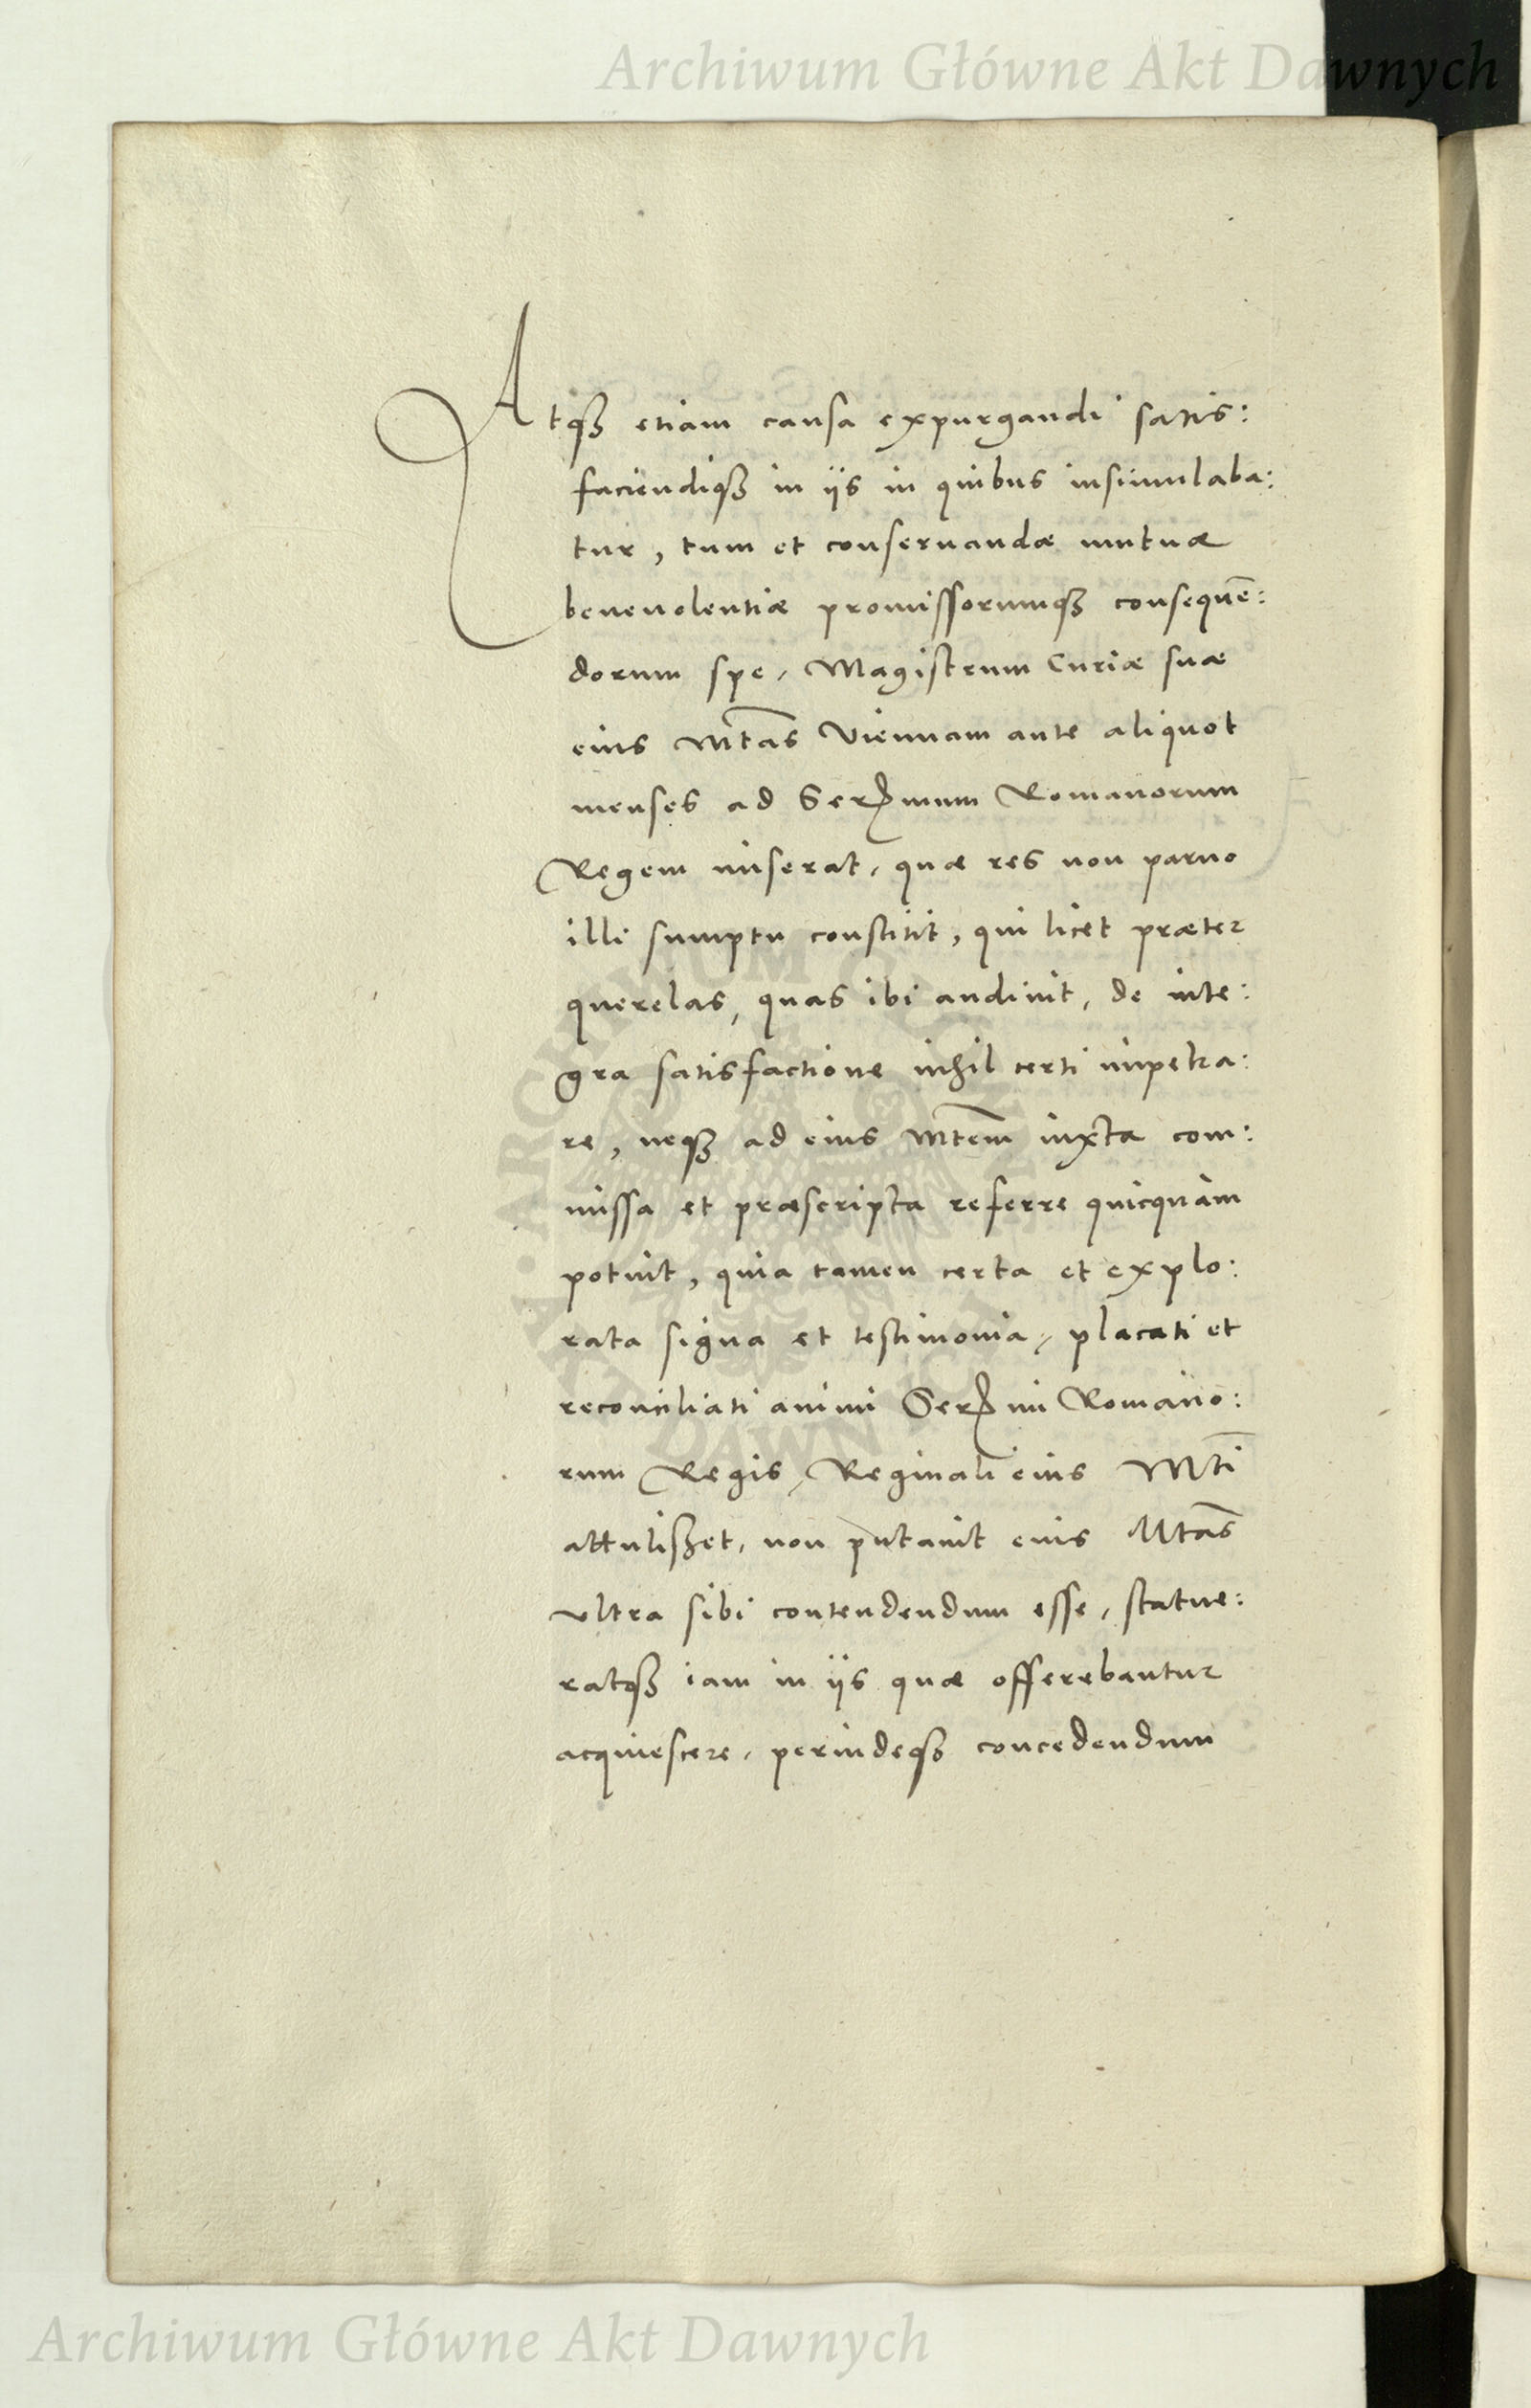 Archiwum Główne Akt Dawnych
Atqꝫ etiam causa expurgandi satis:
faciendiqꝫ in ijs in quibus insimulaba:
tur, tum et conseruandæ mutuæ
beneuolentiæ promissorumqꝫ consequē:
dorum spe, Magistrum Curiæ suæ
eius Mtas Viennam ante aliquot
menses ad Serꝫmum Romanorum
Regem miserat, quæ res non paruo
illi sumptu constitit, qui licet præter
querelas, quas ibi audiuit, de inte:
gra satisfactione nihil certi impetra:
re, neqꝫ ad eius Mtem iuxta com:
missa et præscripta referre quicquam
potuit, quia tamen certa et explo:
rata signa et testimonia, placati et
reconciliati animi Serꝫmi Romano:
rum Regis, Reginali eius Mti
attulisset, non putauit eius Mtas
vltra sibi contendendum esse, statue:
ratqꝫ iam in ijs quæ offerebantur
acquiescere, perindeqꝫ concedendum
Archiwum Główne Akt Dawnych